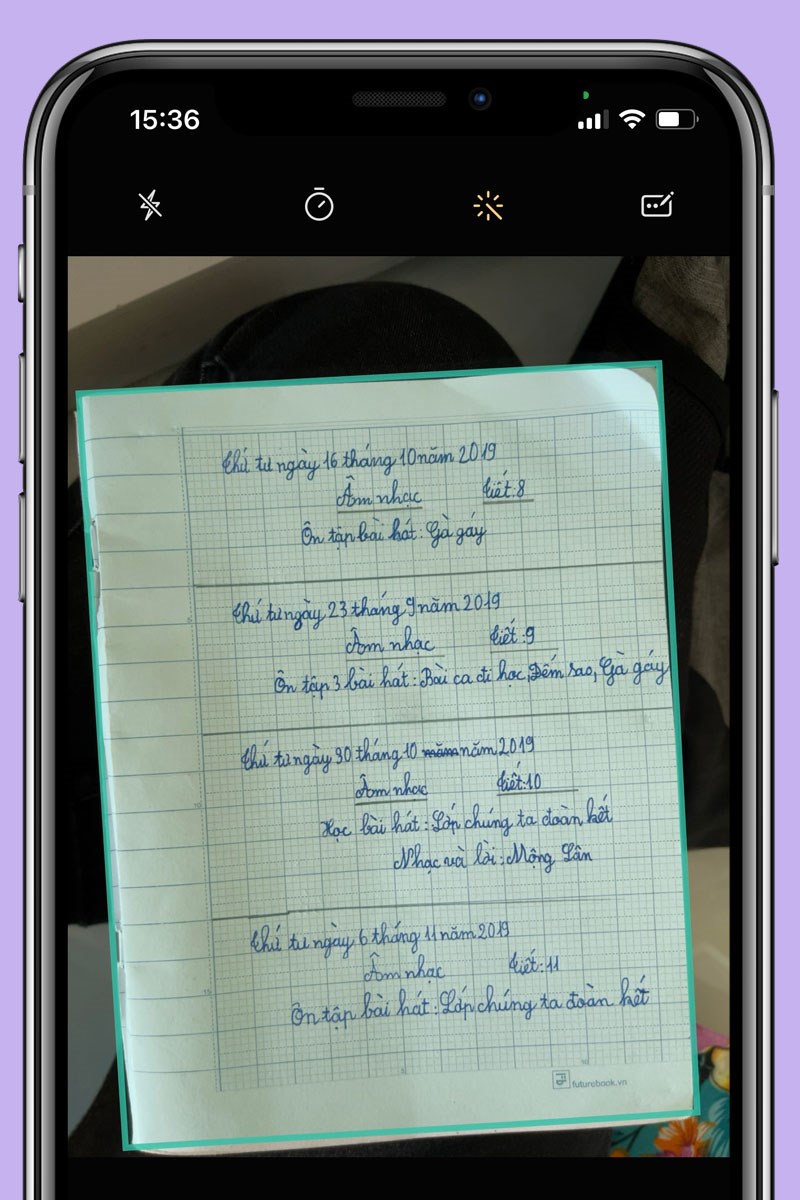 15:36
Thứ tư ngày 16 tháng 10 năm 2019
Âm nhạc Tiết: 8
Ôn tập bài hát: Gà gáy
Thứ tư ngày 23 tháng 9 năm 2019
Âm nhạc Tiết: 9
Ôn tập 3 bài hát: Bài ca đi học, Đếm sao, Gà gáy
Thứ tư ngày 30 tháng 10 năm năm 2019
Âm nhạc Tiết: 10
Học bài hát: Lớp chúng ta đoàn kết
Nhạc và lời: Mộng Lân
Thứ tư ngày 6 tháng 11 năm 2019
Âm nhạc Tiết: 11
Ôn tập bài hát: Lớp chúng ta đoàn kết
futurebook.vn